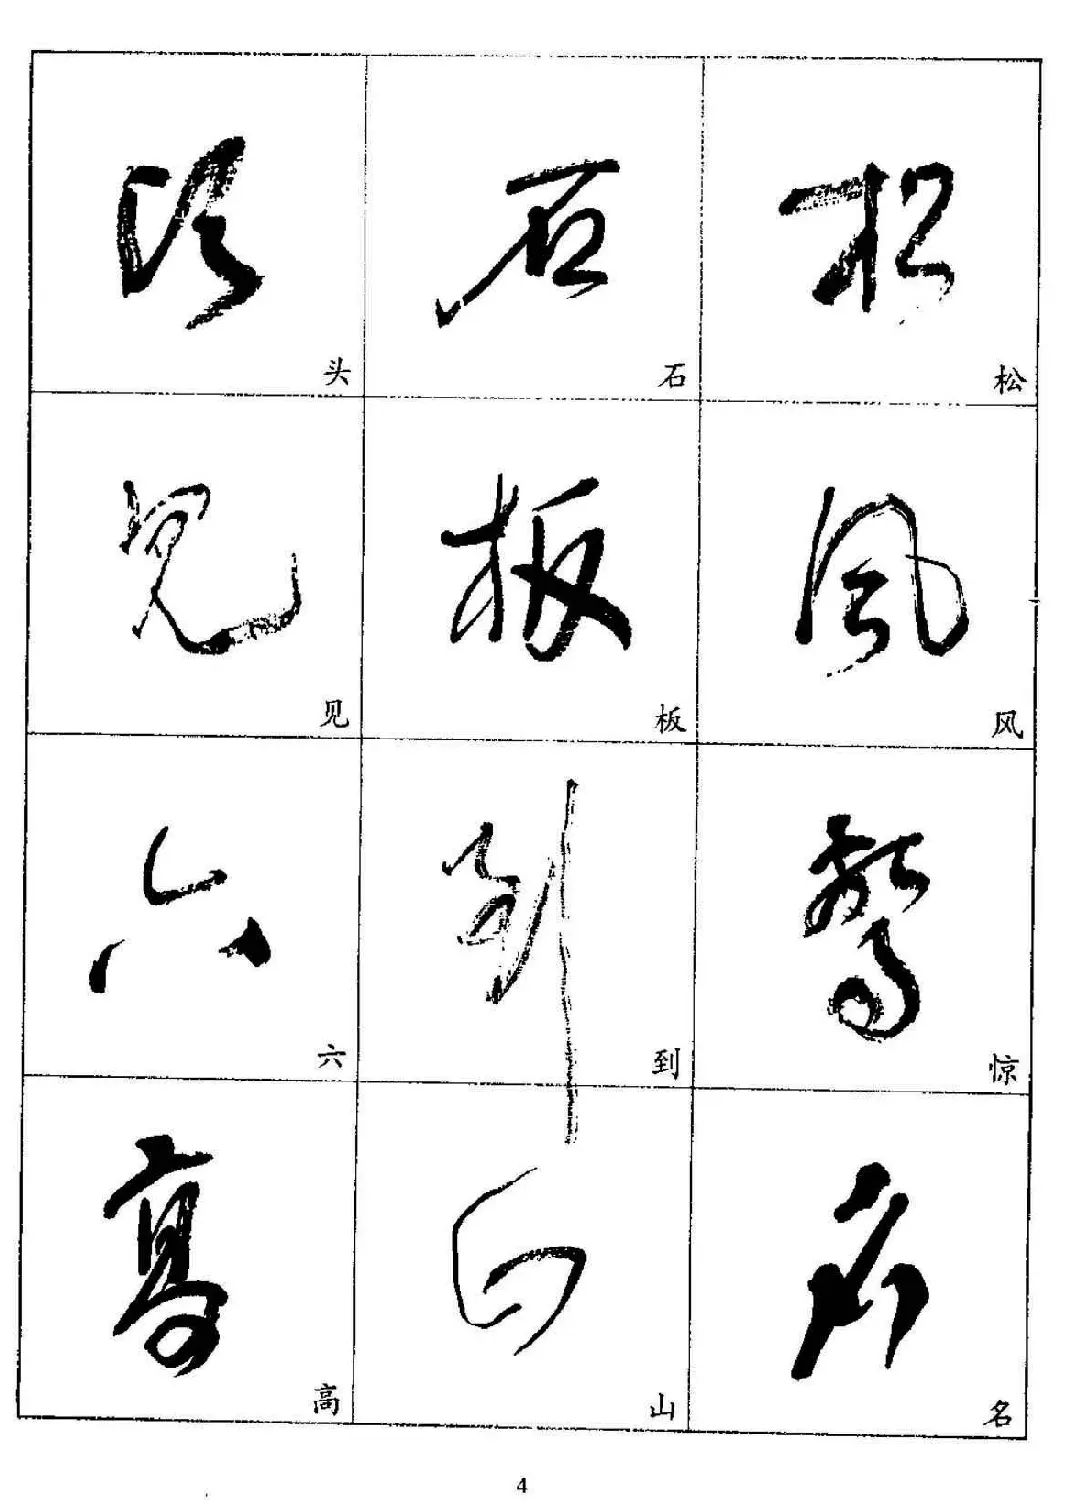 松
松
風
风
驚
惊
名
名
石
石
板
板
到
到
山
山
頭
头
見
见
六
六
高
高
4